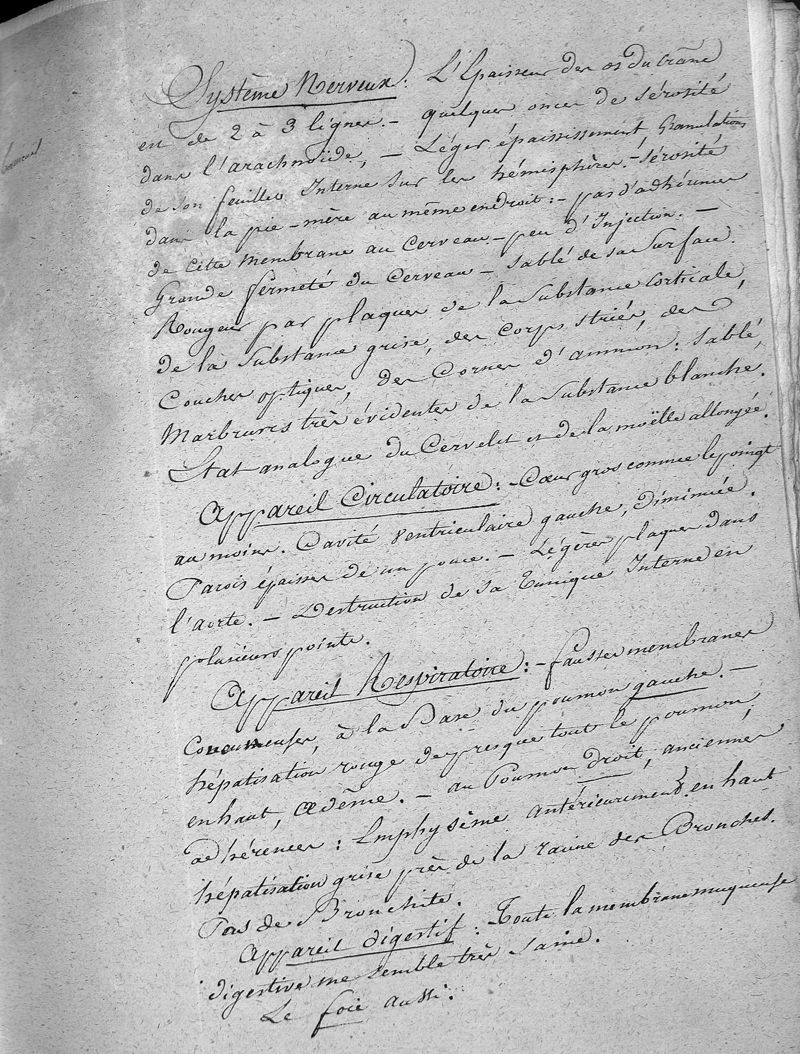 Système Nerveux: L'épaisseur des os du crâne
est de 2 à 3 lignes. - quelques onces de sérosité
dans l'arachnoïde, - Léger épaississement, Granulations
de son feuillet Interne sur les hémisphères. - sérosité
dans la pie-mère au même endroit: - pas d'adhérences
de cette membrane au cerveau - peu d'Injection. -
Grande fermeté du Cerveau - sablé de sa surface.
Rougeur par plaques de la substance corticale,
de la substance grise, des corps striés, des
Couches optiques, des Cornes d'ammon: sablé,
Marbrures très évidentes de la substance blanche.
Etat analogue du Cervelet et de la moëlle allongée.
Appareil Circulatoire: - Cœur gros comme le poingt
au moins. Cavité ventriculaire gauche, Diminuée.
Parois épaisses de un pouce. - Légères plaques dans
l'aorte. - Destruction de sa Tunique Interne en
plusieurs points.
Appareil Respiratoire: - fausses membranes
à la Base du poumon gauche. -
hépatisation rouge de presque tout le poumon,
en haut, œdème. - au Poumon droit, anciennes
adhérences: Emphysème antérieurement et en haut
hépatisation grise près de la racine des Bronches.
Pas de Bronchite.
Appareil digestif: Toute la membrane muqueuse
digestive me semble très saine.
Le foie aussi.